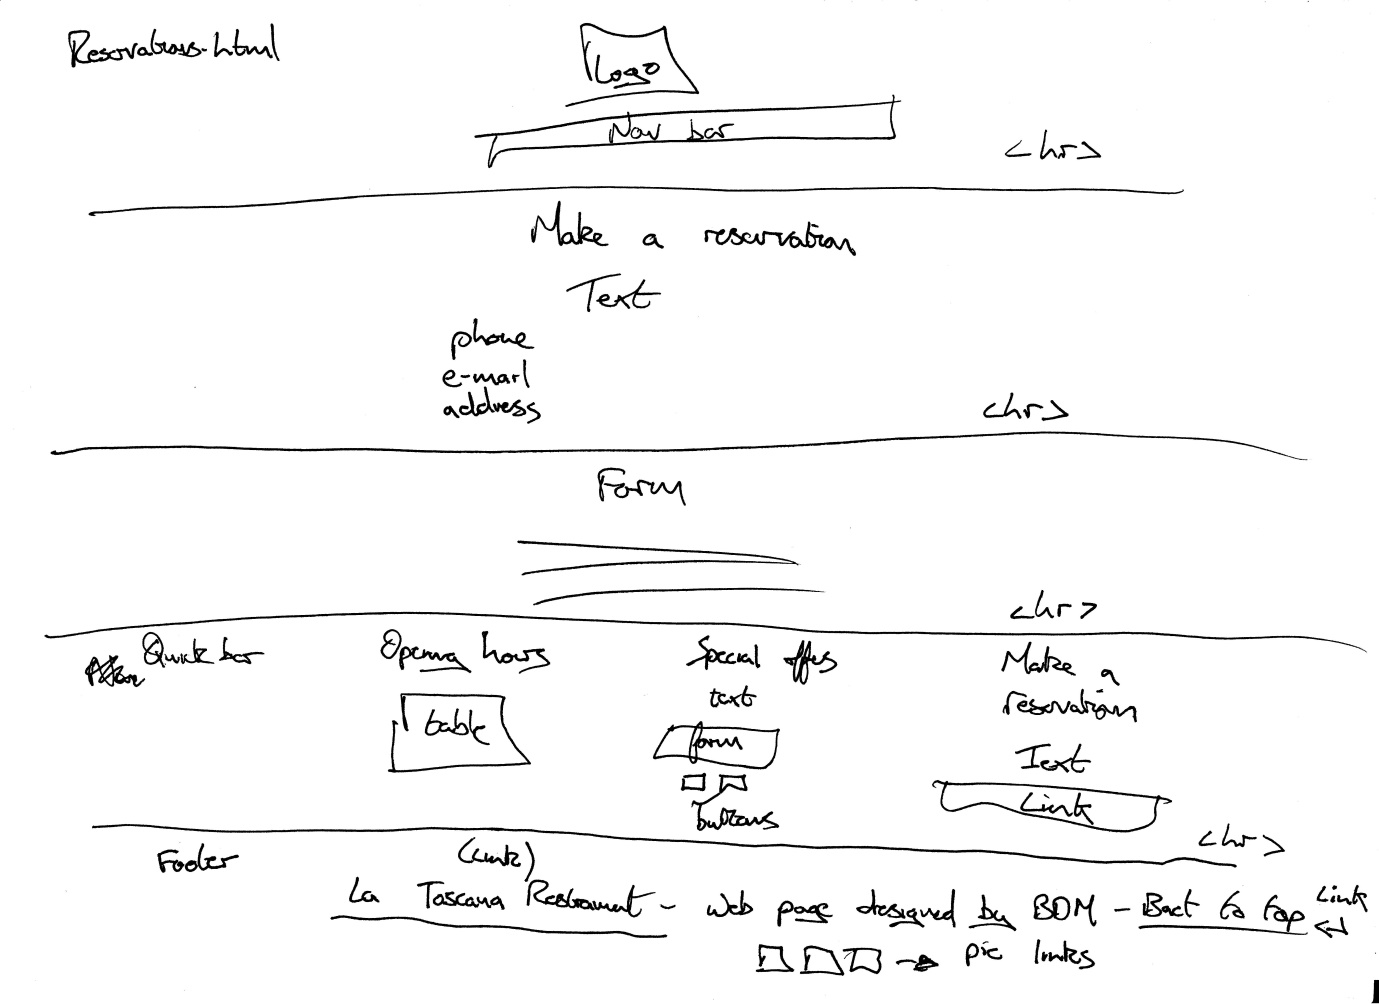 Reservations.html
Logo
Nav bar
<hr>
Make a reservation
Text
phone
e-mail
address
<hr>
Form
<hr>
Quick bar
Opening hours
table
Special offers
text
form
buttons
Make a
reservation
Text
Link
<hr>
Footer
(Link)
La Toscana Restraunt - web page designed by BDM - Back to top Link
pic links